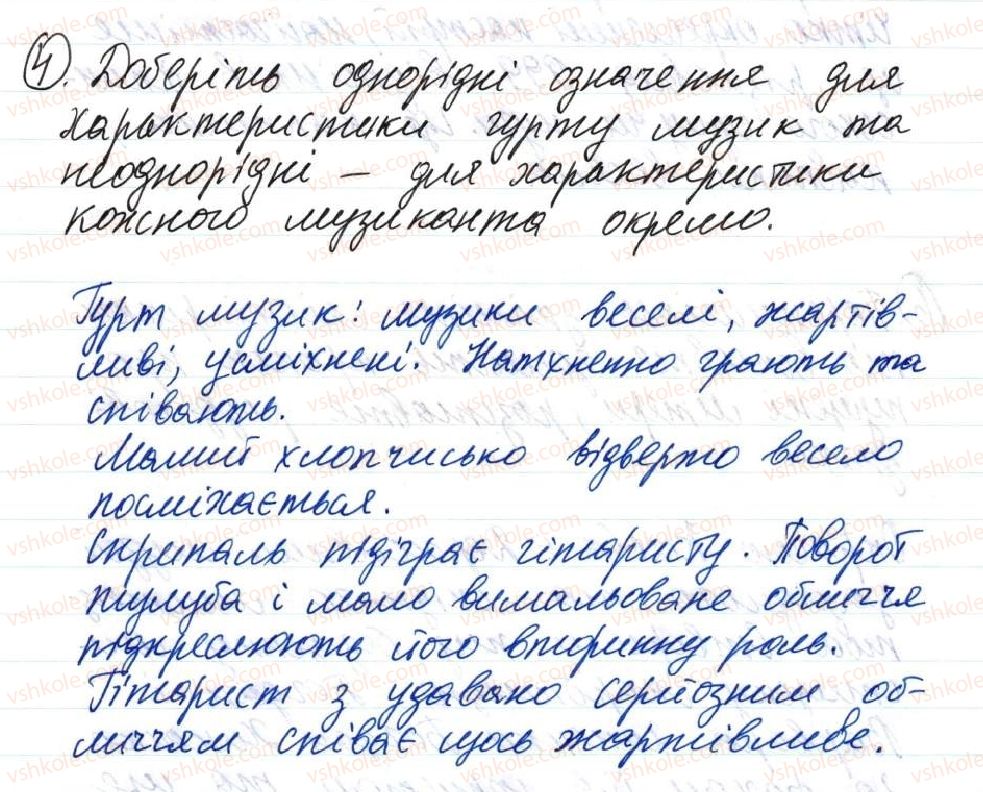 4. Доберіть однорідні означення для
характеристики гурту музик та
неоднорідні – для характеристики
кожного музиканта окремо.
Гурт музик: музики веселі, жартів-
ливі, усміхнені. Натхненно грають та
співають.
Малий хлопчисько відверто весело
посміхається.
Скрипаль підіграє гітаристу. Поворот
тулуба і мало вимальоване обличчя
підкреслюють його вторинну роль.
Гітарист з удавано серйозним об-
личчям співає щось жартівливе.